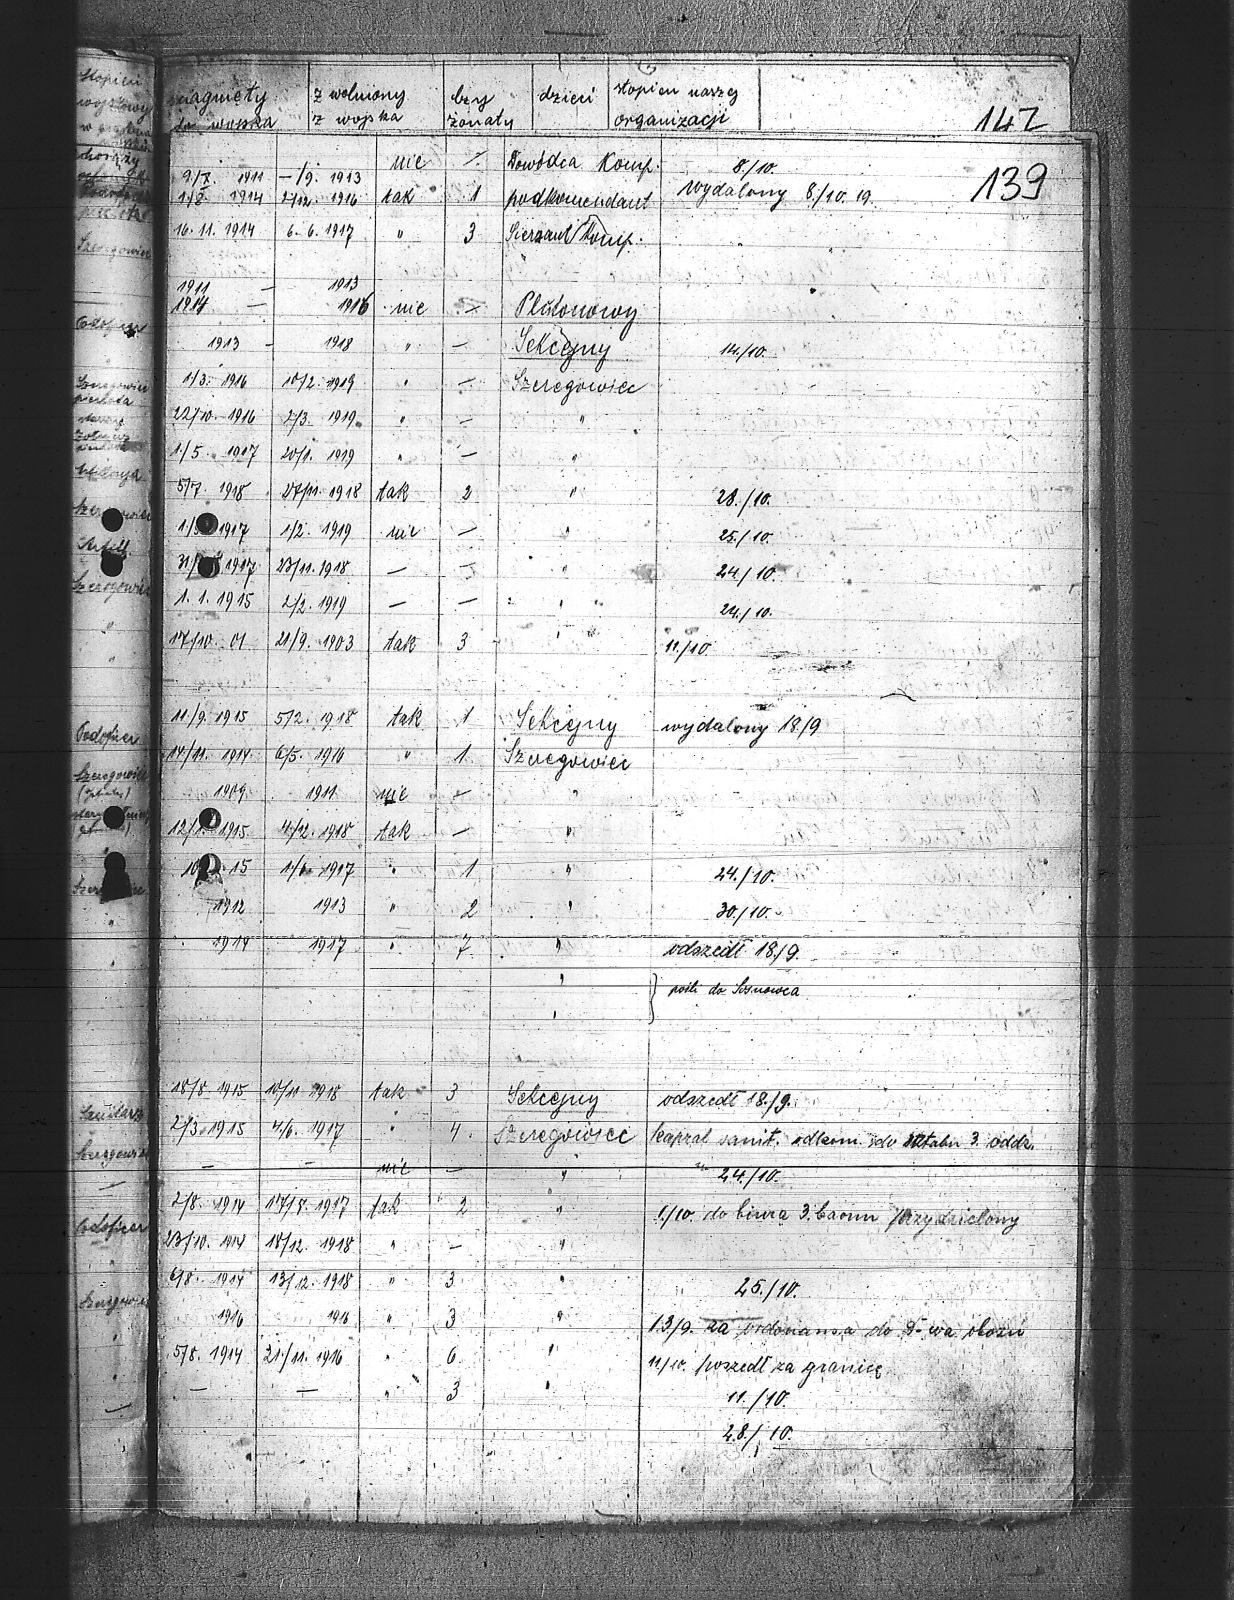 stopień
wojskowy
zaciągnięty do wojska | zwolniony z wojska | czy żonaty | dzieci | stopień naszej organizacji
147
139
9/X. 1911 | -/9. 1913 | nie | Dowódca Komp. | 8/10.
1914 | 2/12. 1916 | tak | 1 | podkomendant | wydalony 8/10. 19.
16. 11. 1914 | 6. 6. 1917 | " | 3 | Sierżant Komp.
1911 — 1913
1914 — 1916 | nie | — | Plutonowy
1913 - 1918 | " | — | Sekcyjny | 14./10.
1/3. 1916 | 10/2. 1919 | " | — | Szeregowiec
22/10. 1916 | 2/3. 1919. | " | — | "
1/5. 1917 | 20/1. 1919 | " | — | "
5/7. 1918 | 27/11. 1918 | tak | 2 | " | 28./10.
1917 | 1/2. 1919 | nie | — | " | 25./10.
31/ 1917 | 23/11. 1918 | — | — | " | 24./10.
1. 1. 1915 | 2/2. 1919 | — | — | " | 24./10.
17/10. 01 | 21/9. 1903 | tak | 3 | " | 11./10.
11/9. 1915 | 5/2. 1918 | tak | 1 | Sekcyjny | wydalony 18/9
14/11. 1914 | 6/5. 1916 | " | 1. | Szeregowiec
1909 | 1911 | nie | — | "
12/1. 1915 | 4/12. 1918 | tak | — | "
15 | 1/6. 1917 | " | 1 | " | 24./10.
1912 | 1913 | " | 2 | " | 30./10.
1914 | 1917 | " | 7. | " | odszedł 18./9.
" | } poszli do Sosnowca
"
18/8. 1915 | 10/11. 1918 | tak | 3 | Sekcyjny | odszedł 18./9.
2/3. 1915 | 4/6. 1917 | " | 4. | Szeregowiec | kapral sanit. odkom. do sztabu 3. oddz.
— | — | nie | — | " | 24./10.
2/8. 1914 | 17/8. 1917 | tak | 2 | " | 1./10. do biura 3. baonu przydzielony
23/10. 1914 | 18/12. 1918 | " | — | "
6/8. 1914 | 13/12. 1918 | " | 3 | " | 25./10.
1916 | 1916 | " | 3 | " | 13/9. za ordonansa do D-wa obozu
5/8. 1914 | 21/11. 1916 | " | 6 | " | 11/10. poszedł za granicę
— | — | " | 3 | " | 11./10.
28./10.
Szeregowiec
Podoficer
Szeregowiec
Szeregowiec
Podoficer
Szeregowiec
Sanitarz
Szeregowiec
Podoficer
Szeregowiec